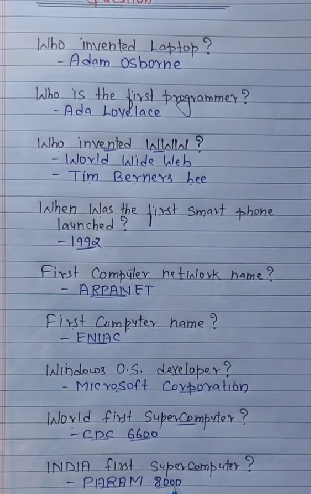 Question
Who invented Laptop?
- Adam Osborne
Who is the first programmer?
- Ada Lovelace
Who invented WWW?
- World Wide Web
- Tim Berners Lee
When was the first smart phone
launched?
- 1992
First Computer network name?
- ARPANET
First Computer name?
- ENIAC
Windows O.S. developer?
- Microsoft Corporation
World first Supercomputer?
- CDC 6600
INDIA first Supercomputer?
- PARAM 8000